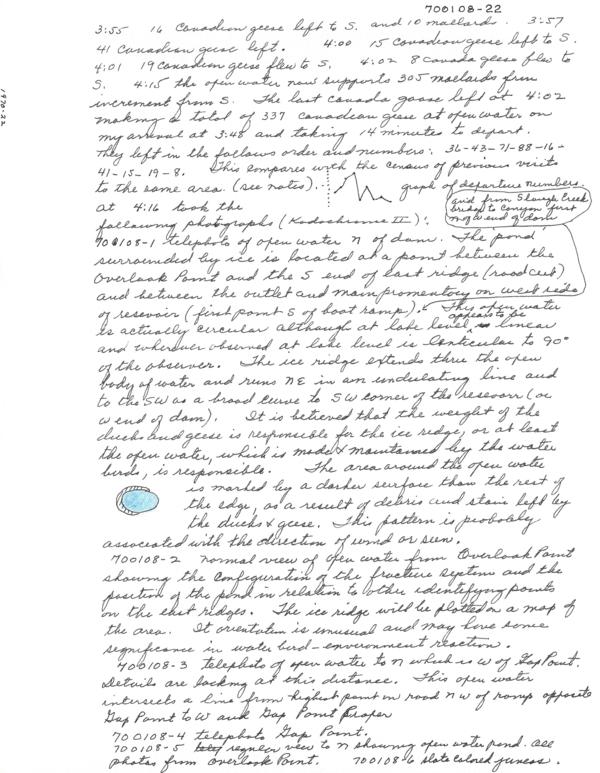 700108-22
3:55 16 Canadian geese left to S. and 10 mallards. 3:57
41 Canadian geese left. 4:00 15 Canadian geese left to S.
4:01 19 Canadian geese flew to S. 4:02 8 Canada geese flew to
S. 4:15 the open water now supports 305 mallards from
increment from S. The last Canada goose left at 4:02
making a total of 337 Canadian geese at open water on
my arrival at 3:48 and taking 14 minutes to depart.
They left in the follows order and numbers: 36-43-71-88-16-
41-15-19-8. This compares with the census of previous visits
to the same area. (see notes). graph of departure numbers.
at 4:16 took the
and from Slough Creek
bridge to Canyon first
n of w end of dam
following photographs (Kodochrome II):
700108-1 telephoto of open water N of dam. The pond
surrounded by ice is located at a point between the
Overlook Point and the S end of east ridge (road cut)
and between the outlet and main promontory on west side
of resevoir (first point S of boat ramp). This open water
is actually circular although at lake level, appears to be linear
and wherever observed at lake level is lenticular to 90°
of the observer. The ice ridge extends thru the open
body of water and runs NE in an undulating line and
to the SW as a broad curve to SW corner of the resevoir (or
W end of dam). It is believed that the weight of the
ducks and geese is responsible for the ice ridge, or at least
the open water, which is made & maintained by the water
birds, is responsible. The area around the open water
is marked by a darker surface than the rest of
the edge, as a result of debris and stain left by
the ducks & geese. This pattern is probably
associated with the direction of wind or sun.
700108-2 normal view of open water from Overlook Point
showing the configuration of the fracture system and the
position of the pond in relation to other identifying points
on the east ridges. The ice ridge will be plotted on a map of
the area. It orientation is unusual and may have some
significance in water bird-environment reaction.
700108-3 telephoto of open water to N which is W of Gap Point.
Details are lacking at this distance. This open water
intersects a line from highest point on road NW of ramp opposite
Gap Point to W and Gap Point proper
700108-4 telephoto Gap Point.
700108-5 regular view to N showing open water pond. All
photos from Overlook Point. 700108-6 slate colored juncos.
1970-22